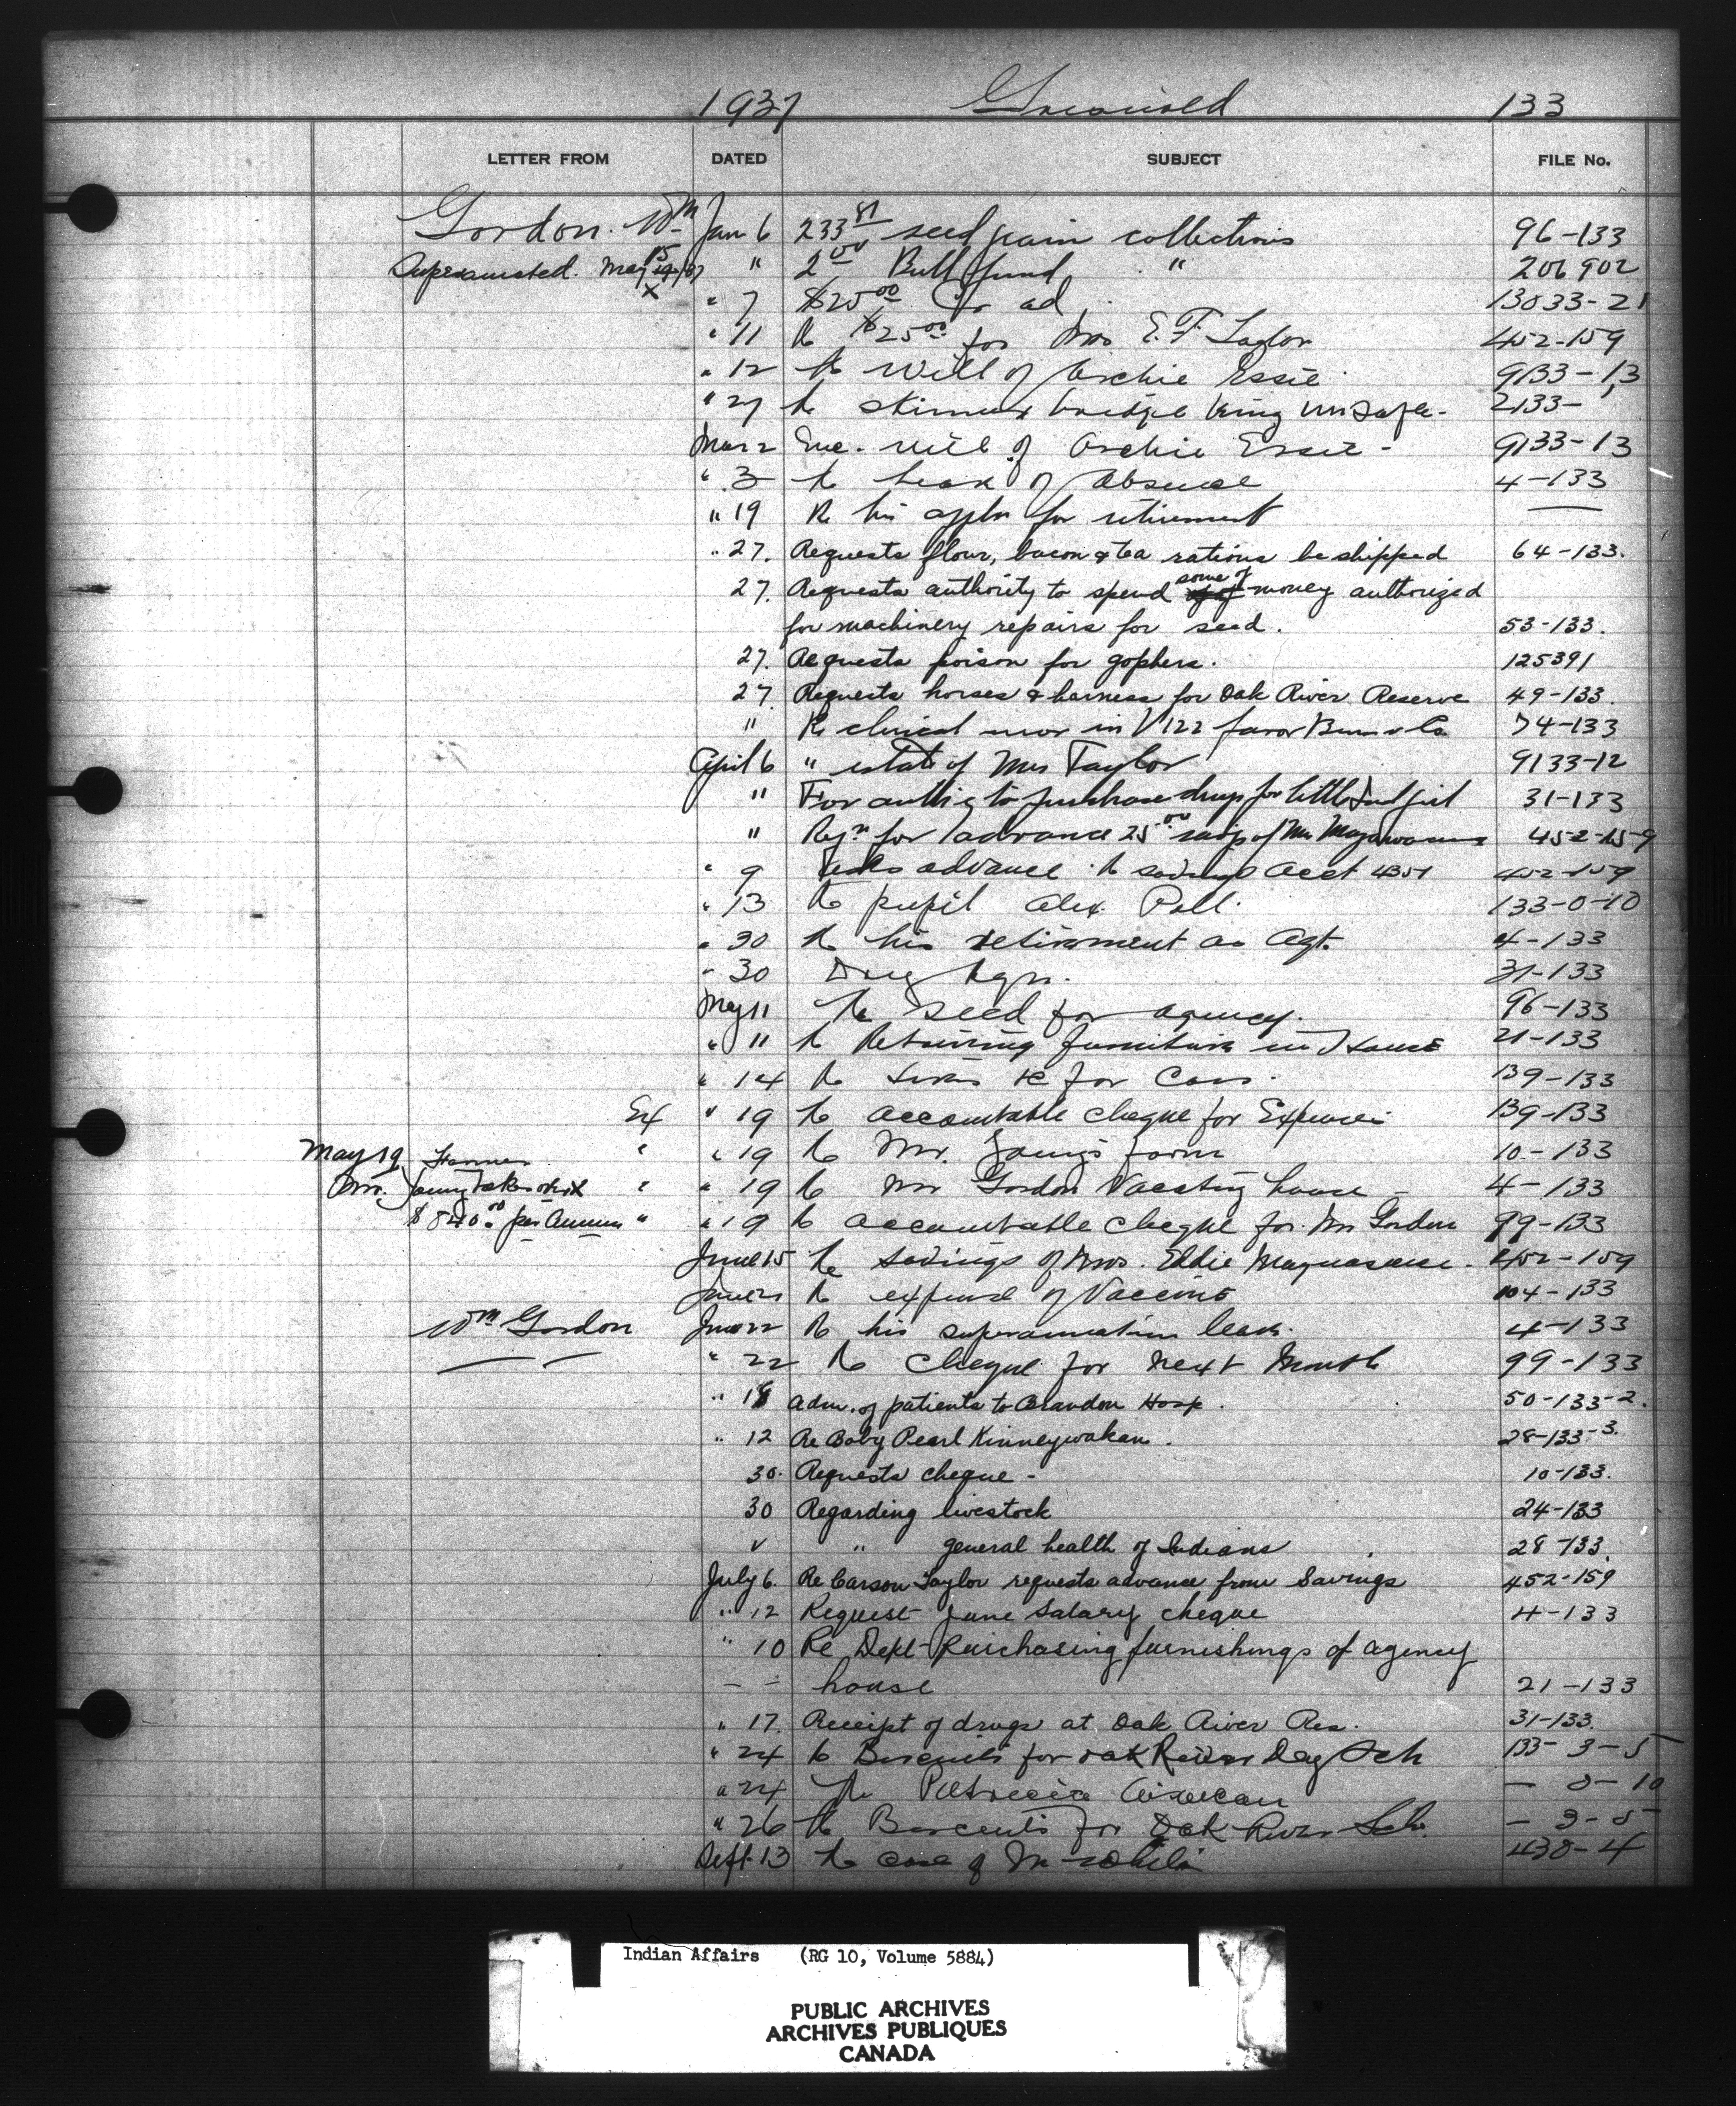 1937 Griswold 133
LETTER FROM DATED SUBJECT FILE No.
Gordon. Wm Jan 6 233 81 seed grain collections 96-133
Superannuated. May 15 " 2 00 Bull fund " 206902
" 7 $25 00 ad 13033-21
" 11 Re $25 00 for Mrs E. F. Taylor 452-159
" 12 Re Will of Archie Essie 9133-13
" 27 Re bridge being unsafe- 2133-1
Mar 2 Enc. will of Archie Essie - 9133-13
" 3 Re Leave of Absence 4-133
" 19 Re his appln for retirement —
" 27. Requests flour, bacon & tea rations be shipped 64-133.
27. Requests authority to spend some of money authorized
for machinery repairs for seed. 53-133.
27. Requests poison for gophers. 125391
27. Requests horses & harness for Oak River Reserve 49-133.
" Re clerical error in V 122 favor Burns & Co 74-133
April 6 " estate of Mrs Taylor 9133-12
" For auth'y to purchase drugs for little Ind girl 31-133
" Reqn for advance 25 00 of Mrs 452-159
" 9 advance Re savings Acct 4351 452-159
" 13 Re pupil Alex. Poll. 133-0-10
" 30 Re his retirement as Agt. 4-133
" 30 Drug Reqn. 31-133
May 11 Re Seed for agency. 96-133
" 11 Re Retaining furniture in House 21-133
" 14 Re Tires &c for Cars. 139-133
Ex " 19 Re accountable cheque for Expenses 139-133
May 19 Farmer " " 19 Re Mr. Young's form 10-133
Mr. Young takes over " " 19 Re Mr Gordon Vacating house - 4-133
$840.00 per Annum " " 19 Re accountable cheque for Mr Gordon 99-133
June 15 Re Savings of Mrs. Eddie 452-159
June 21 Re expense of Vaccine 104-133
Wm Gordon June 22 Re his superannuation leave. 4-133
" 22 Re Cheque for next Month 99-133
" 18 Adm. of patients to Brandon Hosp. 50-133-2.
" 12 Re Baby Pearl Kinneywakan. 28-133-3.
30. Requests cheque - 10-133.
30 Regarding livestock 24-133
" " general health of Indians 28-133.
July 6. Re Carson Taylor requests advance from Savings 452-159
" 12 Request June Salary cheque 4-133
" 10 Re Dept Purchasing furnishings of agency
- - house 21-133
" 17. Receipt of drugs at Oak River Res. 31-133.
" 24 Re Biscuits for Oak River Day Sch 133-3-5
" 24 Re Patricia - 0-10
" 26 Re Biscuits for Oak River Sch. - 3-5
Sept 13 Re case of 430-4
Indian Affairs (RG 10, Volume 5884)
PUBLIC ARCHIVES
ARCHIVES PUBLIQUES
CANADA